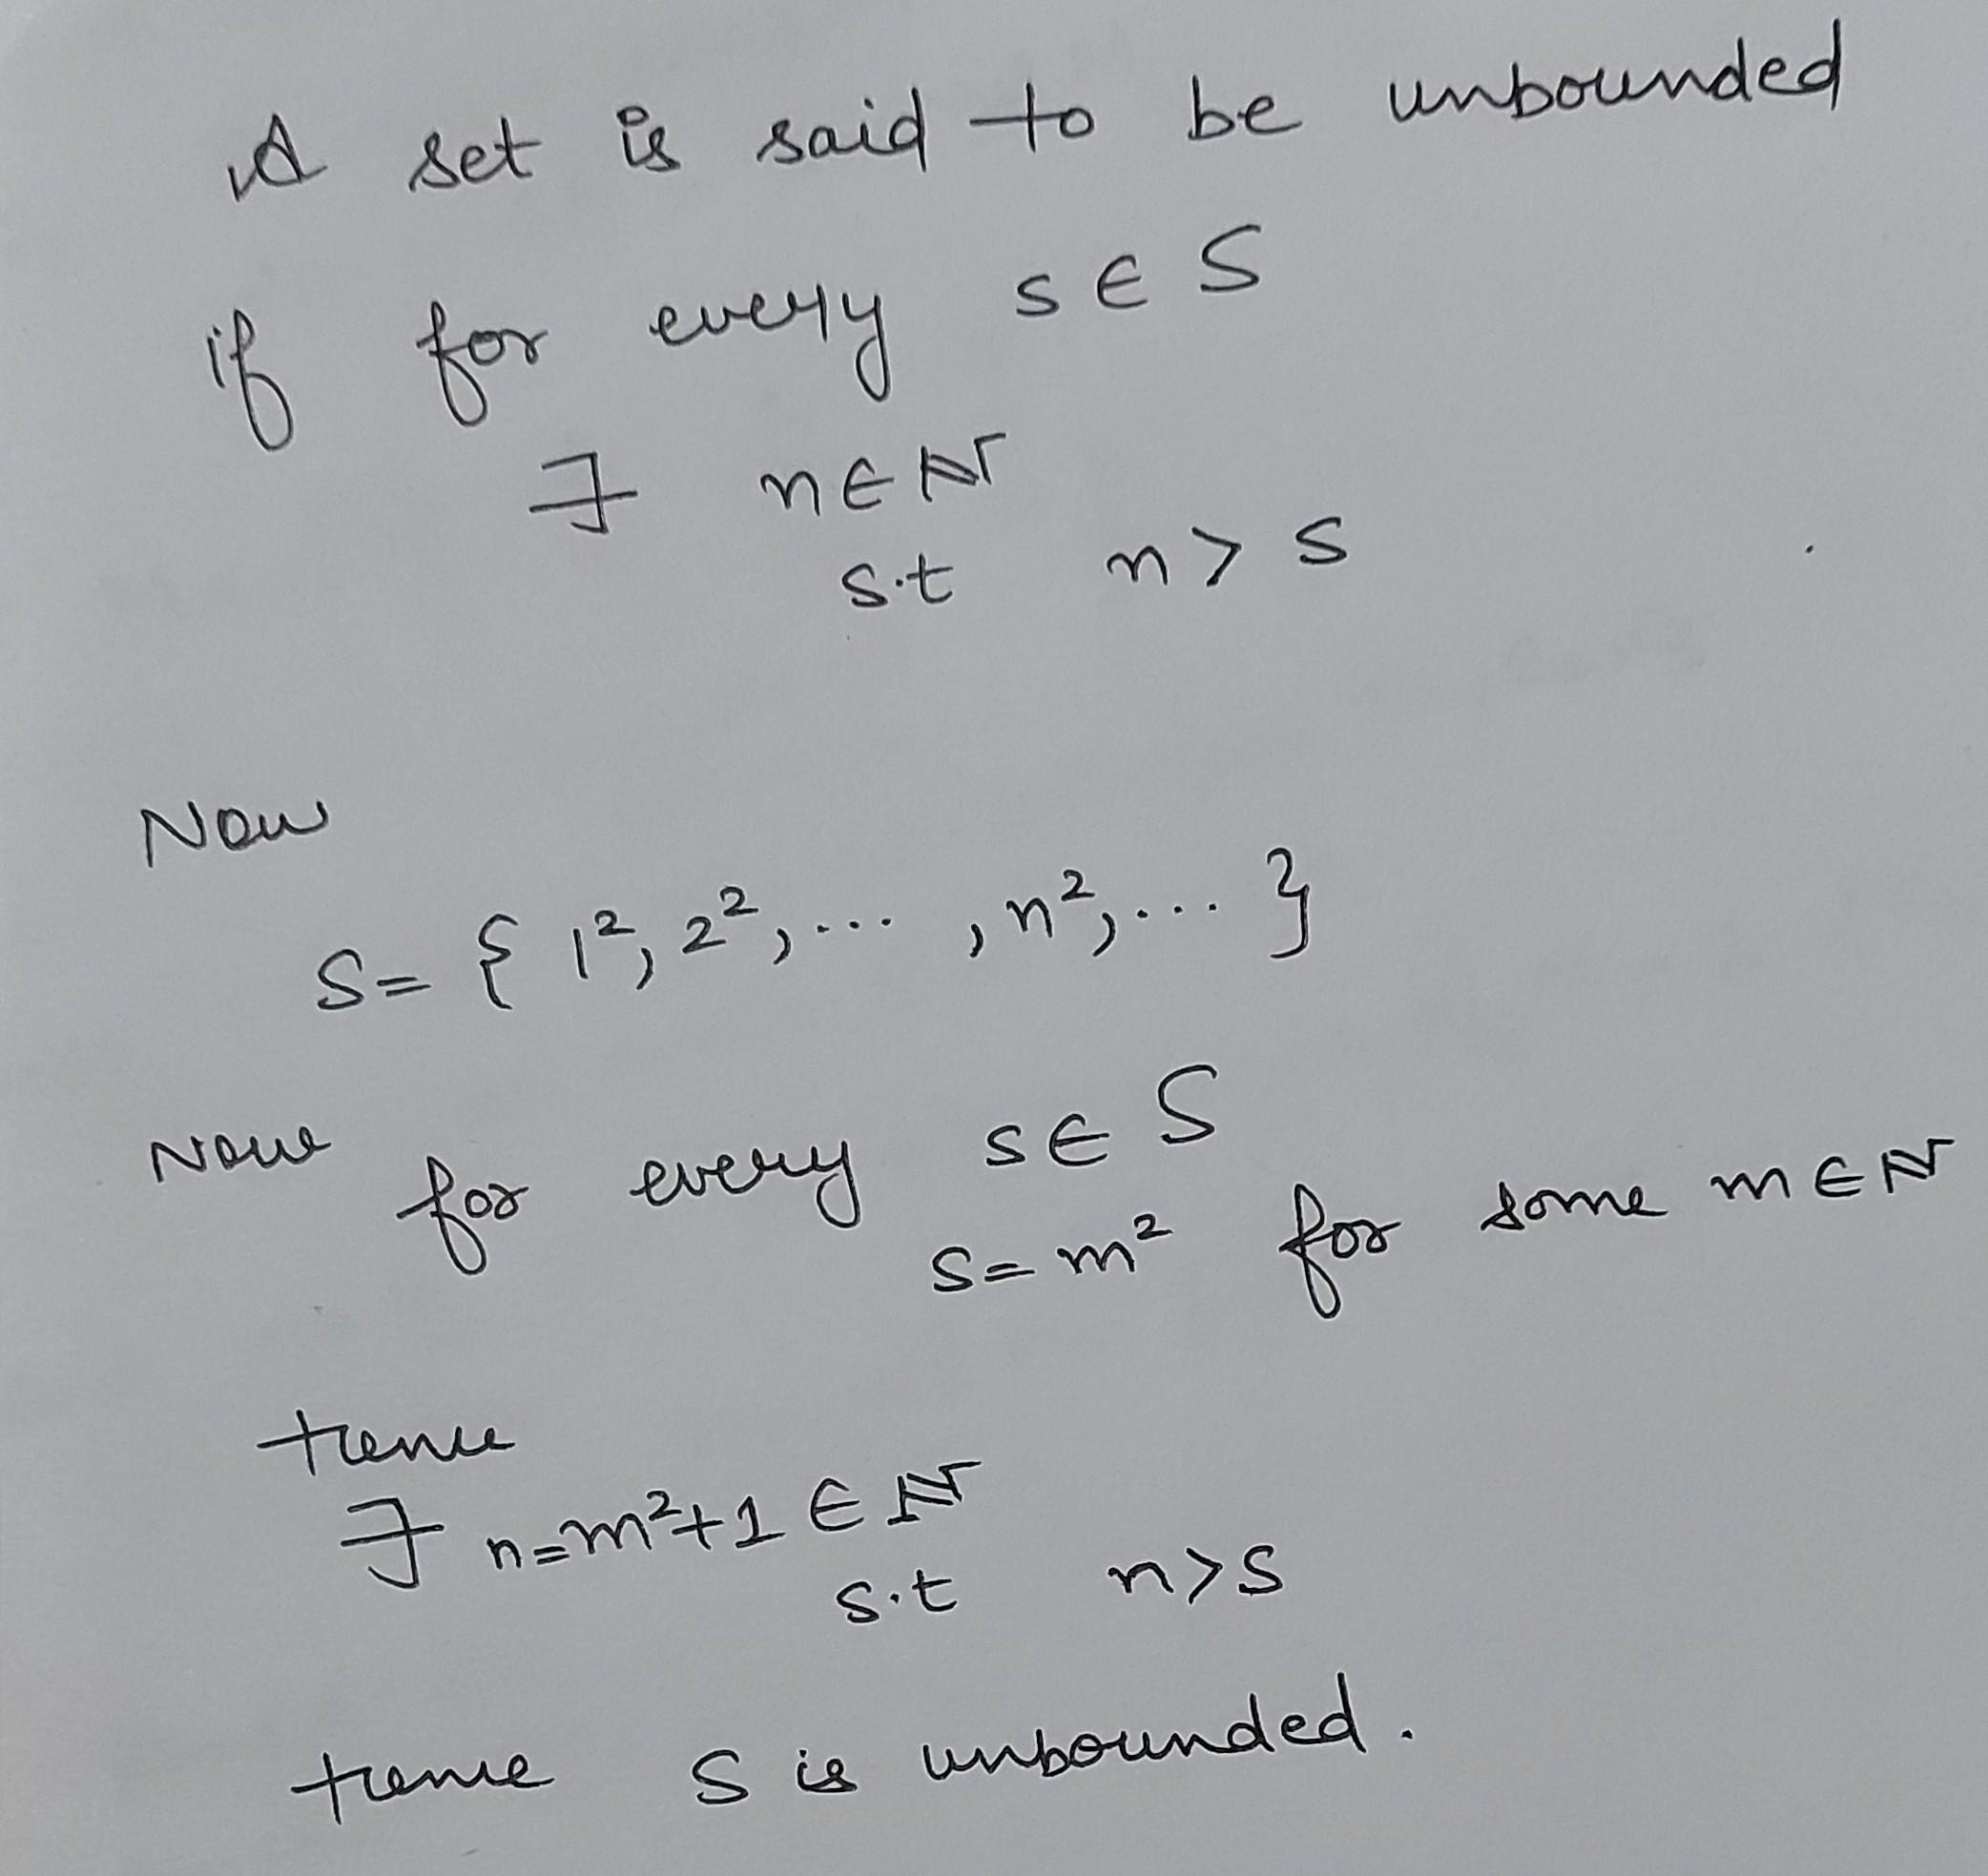 A set is said to be unbounded
if for every s ∈ S
∃ n ∈ ℕ
s.t n > s
Now
S = { 1², 2², ... , n², ... }
Now for every s ∈ S
s = m² for some m ∈ ℕ
Hence
∃ n = m² + 1 ∈ ℕ
s.t n > s
Hence S is unbounded.